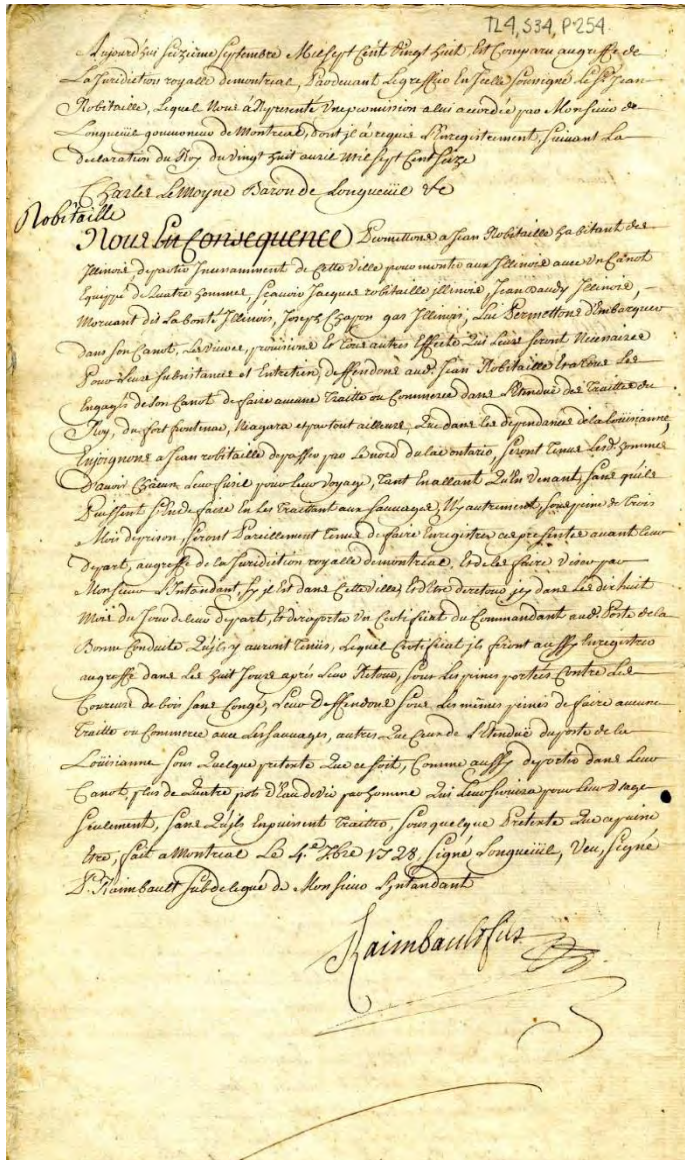 TL4, S34, P254
Aujourd'hui seizieme septembre Mil sept Cent Vingt huit, Est Comparu au greffe de
La Juridiction royalle de montreal, Pardevant Le greffier En Icelle soussigné Le Sr. Jean
Robitaille, Lequel Nous à Representé Une permission a lui accordée par Monsieur de
Longueüil gouverneur de Montreal, dont jl à requis L'Enregistrement, suivant La
declaration du Roy du vingt huit avril mil sept Cent seize
Charles Lemoyne Baron de Longueüil &c
Robitaille
Nous En Consequence Permettons a Jean Robitaille habitant des
Illinois de partir Incessamment de Cette Ville pour monter aux Illinois avec un Canot
Equippé de Quatre hommes, scavoir Jacques robitaille illinois, Jean Baudy Illinois,
Morvant dit La bonté Illinois, Joseph Chapon gas Illinois; Lui Permettons d'Embarquer
dans son Canot, Les vivres, provisions Et tous autres Effects Qui Leurs seront Necessaires
Pour Leurs subsistances et Entretien, deffendons aud. Jean Robitaille Et a tous Les
Engagés de son Canot de faire aucune Traitte ou Commerce dans L'Etendue des Traittes du
Roy, du fort frontenac, Niagara et partout ailleurs, Que dans Les dependances de la Loüisianne,
Enjoignons a Jean robitaille de passer par Le nord du lac ontario, seront Tenus Lesd. hommes
D'avoir Chacun Leur fusil pour Leur Voyage, Tant En allant Qu'En Venant, sans qu'ils
Puissent s'En defaire En Les Traittant aux sauvages, Ny autrement, sous peine de trois
Mois de prison, seront Pareillement Tenus de faire Enregistrer ces presentes avant Leur
Depart, au greffe de la Juridiction royalle de montreal, Et de Les faire Viser par
Monsieur L'Intandant, sy jl Est dans Cette Ville, Et d'Etre de retour jcy dans Les dix huit
Mois du Jour de Leur depart, Et de raporter un Certificat du Commandant aud. Poste de la
Bonne Conduite Qu'jls y auront Tenüe, Lequel Certificat jls feront aussy Enregistrer
au greffe dans Les huit Jours après Leur Retour, sous Les peines portées Contre Les
Coureurs de bois sans Congé, Leur Deffendons sous Les mêmes peines de faire aucune
Traitte ou Commerce avec Les sauvages, autres Que Ceux de L'Etenduë du poste de la
Loüisianne sous Quelque pretexte Que ce soit, Comme aussy de porter dans Leur
Canot plus de Quatre pots d'Eau de Vie par homme Qui Leur servira pour Leur Usage
seulement, sans Qu'jls En puissent Traitter, sous quelque Pretexte Que ce puisse
Etre, fait a Montreal Le 4.e 7bre 1728, signé Longueüil, Veu, signé
Pr. Raimbault subdelegué de Monsieur L'jntandant
Raimbault fils